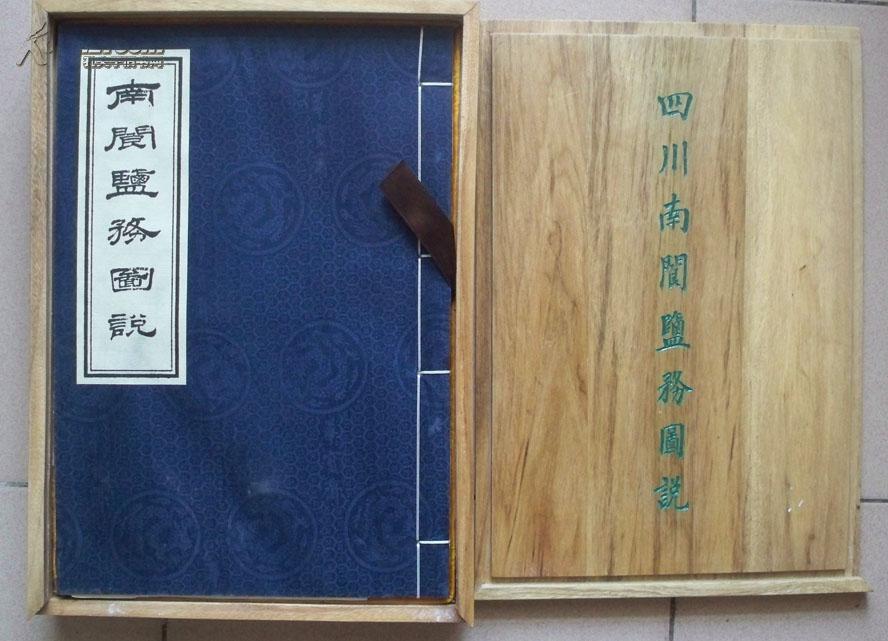 南閬鹽務圖說
四川南閬鹽務圖説